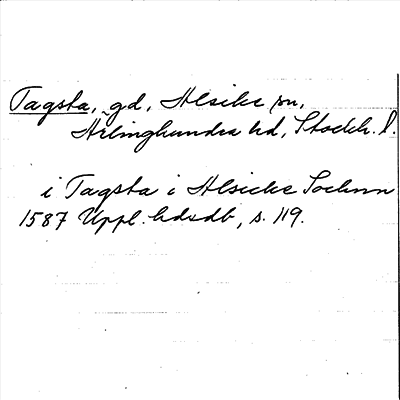 Tagsta, gd, Alsike sn,
Ärlinghundra hd, Stockh. l.
i Tagsta i Alsicke Sochnn
1587 Uppl. hdsdb, s. 119.